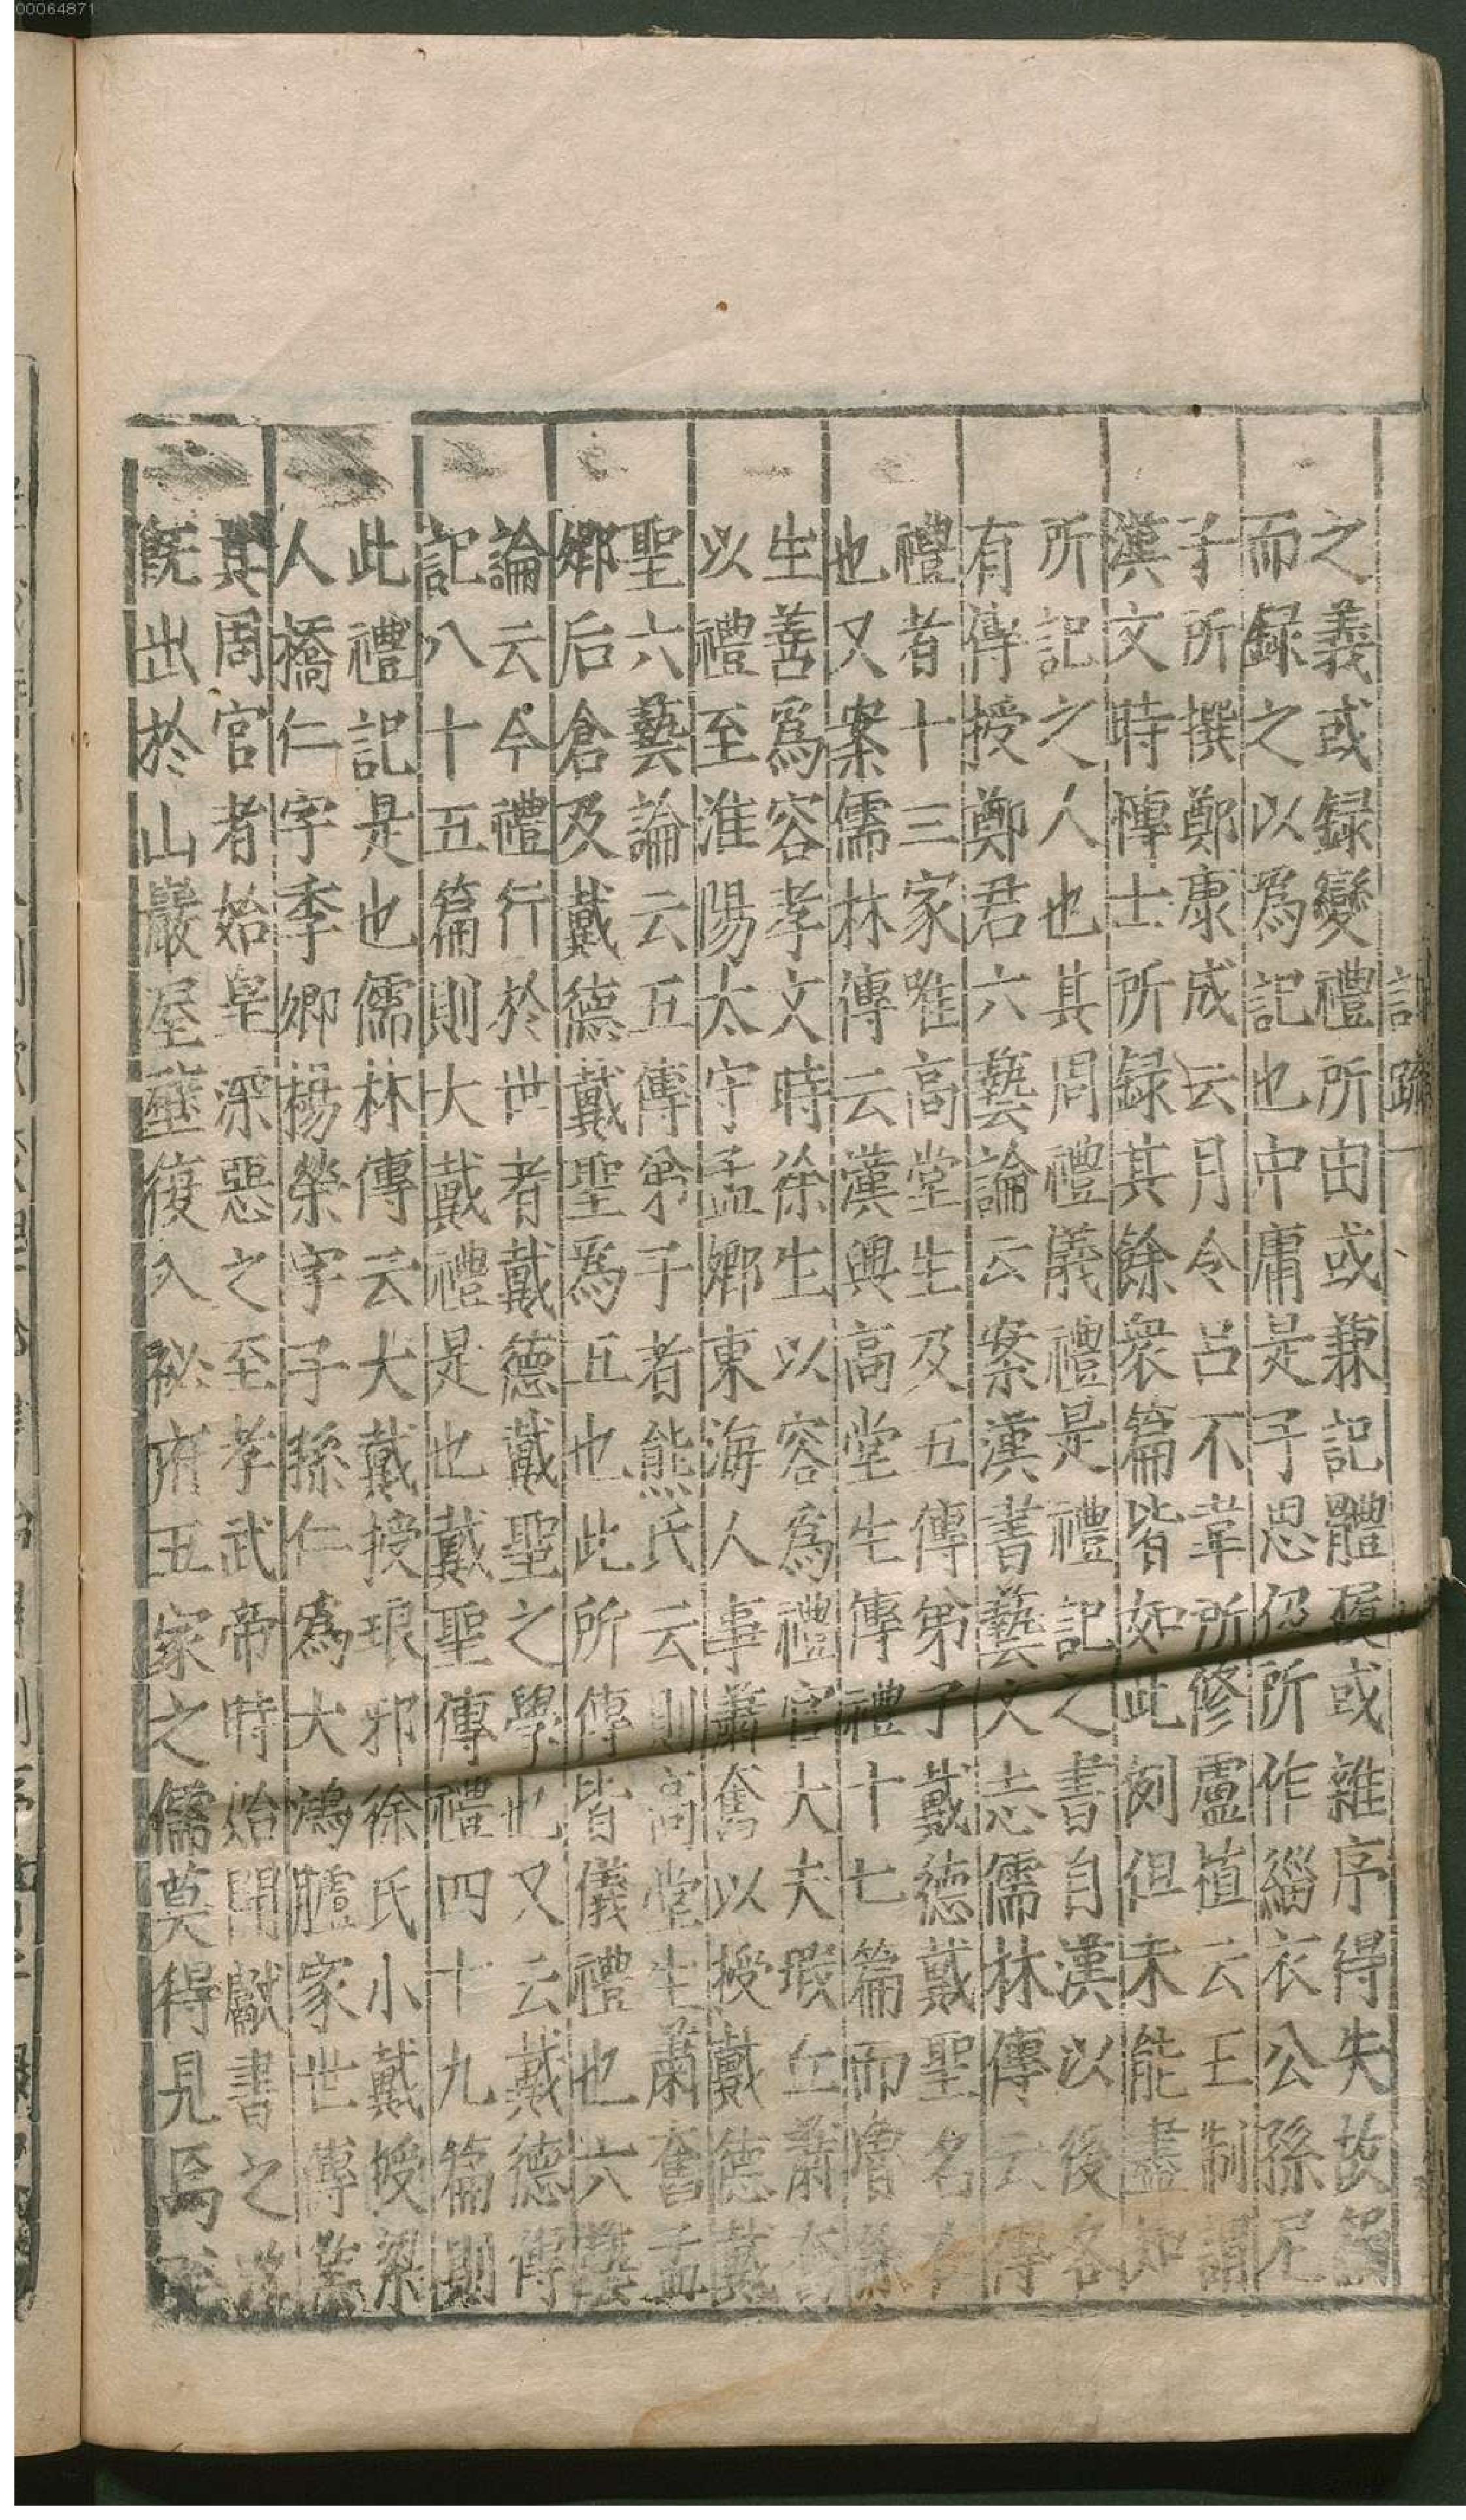 00064871
記疏一
之義或録變禮所由或兼記體履或雜序得失故
而録之以爲記也中庸是子思伋所作緇衣公孫尼
子所撰鄭康成云月令呂不韋所修盧植云王制謂
漢文時慱士所録其餘衆篇皆如此例但未能盡知
所記之人也其周禮儀禮是禮記之書自漢以後各
有傳授鄭君六藝論云案漢書藝文志儒林傳云傳
禮者十三家唯高堂生及五傳弟子戴德戴聖名在
也又案儒林傳云漢興高堂生傳禮十七篇而魯徐
生善爲容孝文時徐生以容爲禮官大夫瑕丘蕭奮
以禮至淮陽太守孟郷東海人事蕭奮以授戴德戴
聖六藝論云五傳弟子者熊氏云則高堂生蕭奮孟
郷后倉及戴德戴聖爲五也此所傳皆儀禮也六藝
論云今禮行於世者戴德戴聖之學也又云戴德傳
記八十五篇則大戴禮是也戴聖傳禮四十九篇則
此禮記是也儒林傳云大戴授琅邪徐氏小戴授梁
人橋仁字季卿楊榮字子孫仁爲大鴻臚家世傳業
其周官者始皇深惡之至孝武帝時始開獻書之
既出於山巖屋壁復入祕府五家之儒莫得見焉至